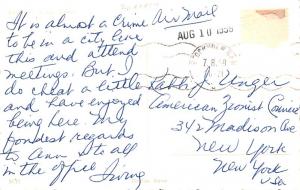 It is almost a crime Air Mail
to be in a city like
this and attend
meetings. But I
do cheat a little
and have enjoyed
being here. My
fondest regards
to Ann & to all
in the office
Irving
AUG 10 1958
Rabbi J. Unger
American Zionist Council
342 Madison Ave
New York
New York
USA